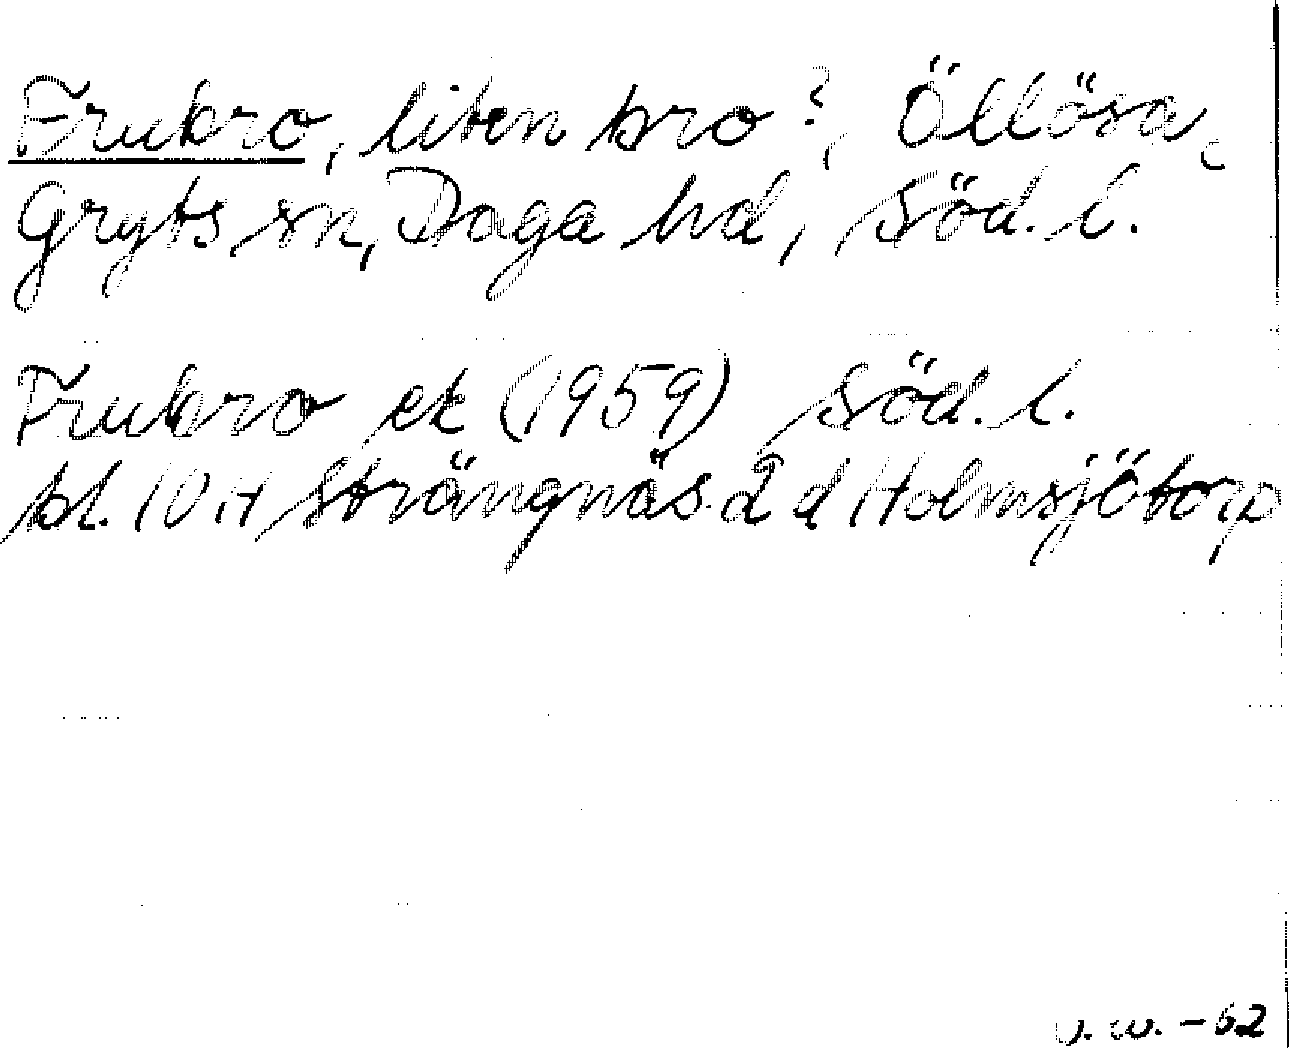 Frubro, liten bro?, Öllösa,
Gryts sn, Daga hd, Söd. l.
Frubro ek (1959) Söd. l.
bl. 10 H Strängnäs 2 d Holmsjötorp
v. w. -62